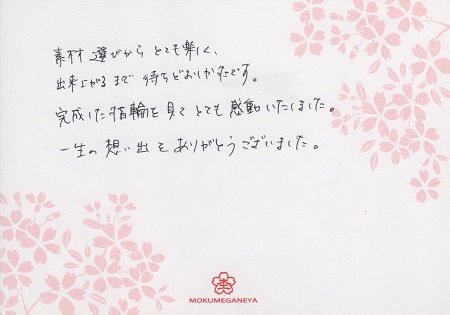 素材選びからとても楽しく、
出来上がるまで待ちどおしかったです。
完成した指輪を見てとても感動いたしました。
一生の想い出をありがとうございました。
MOKUMEGANEYA